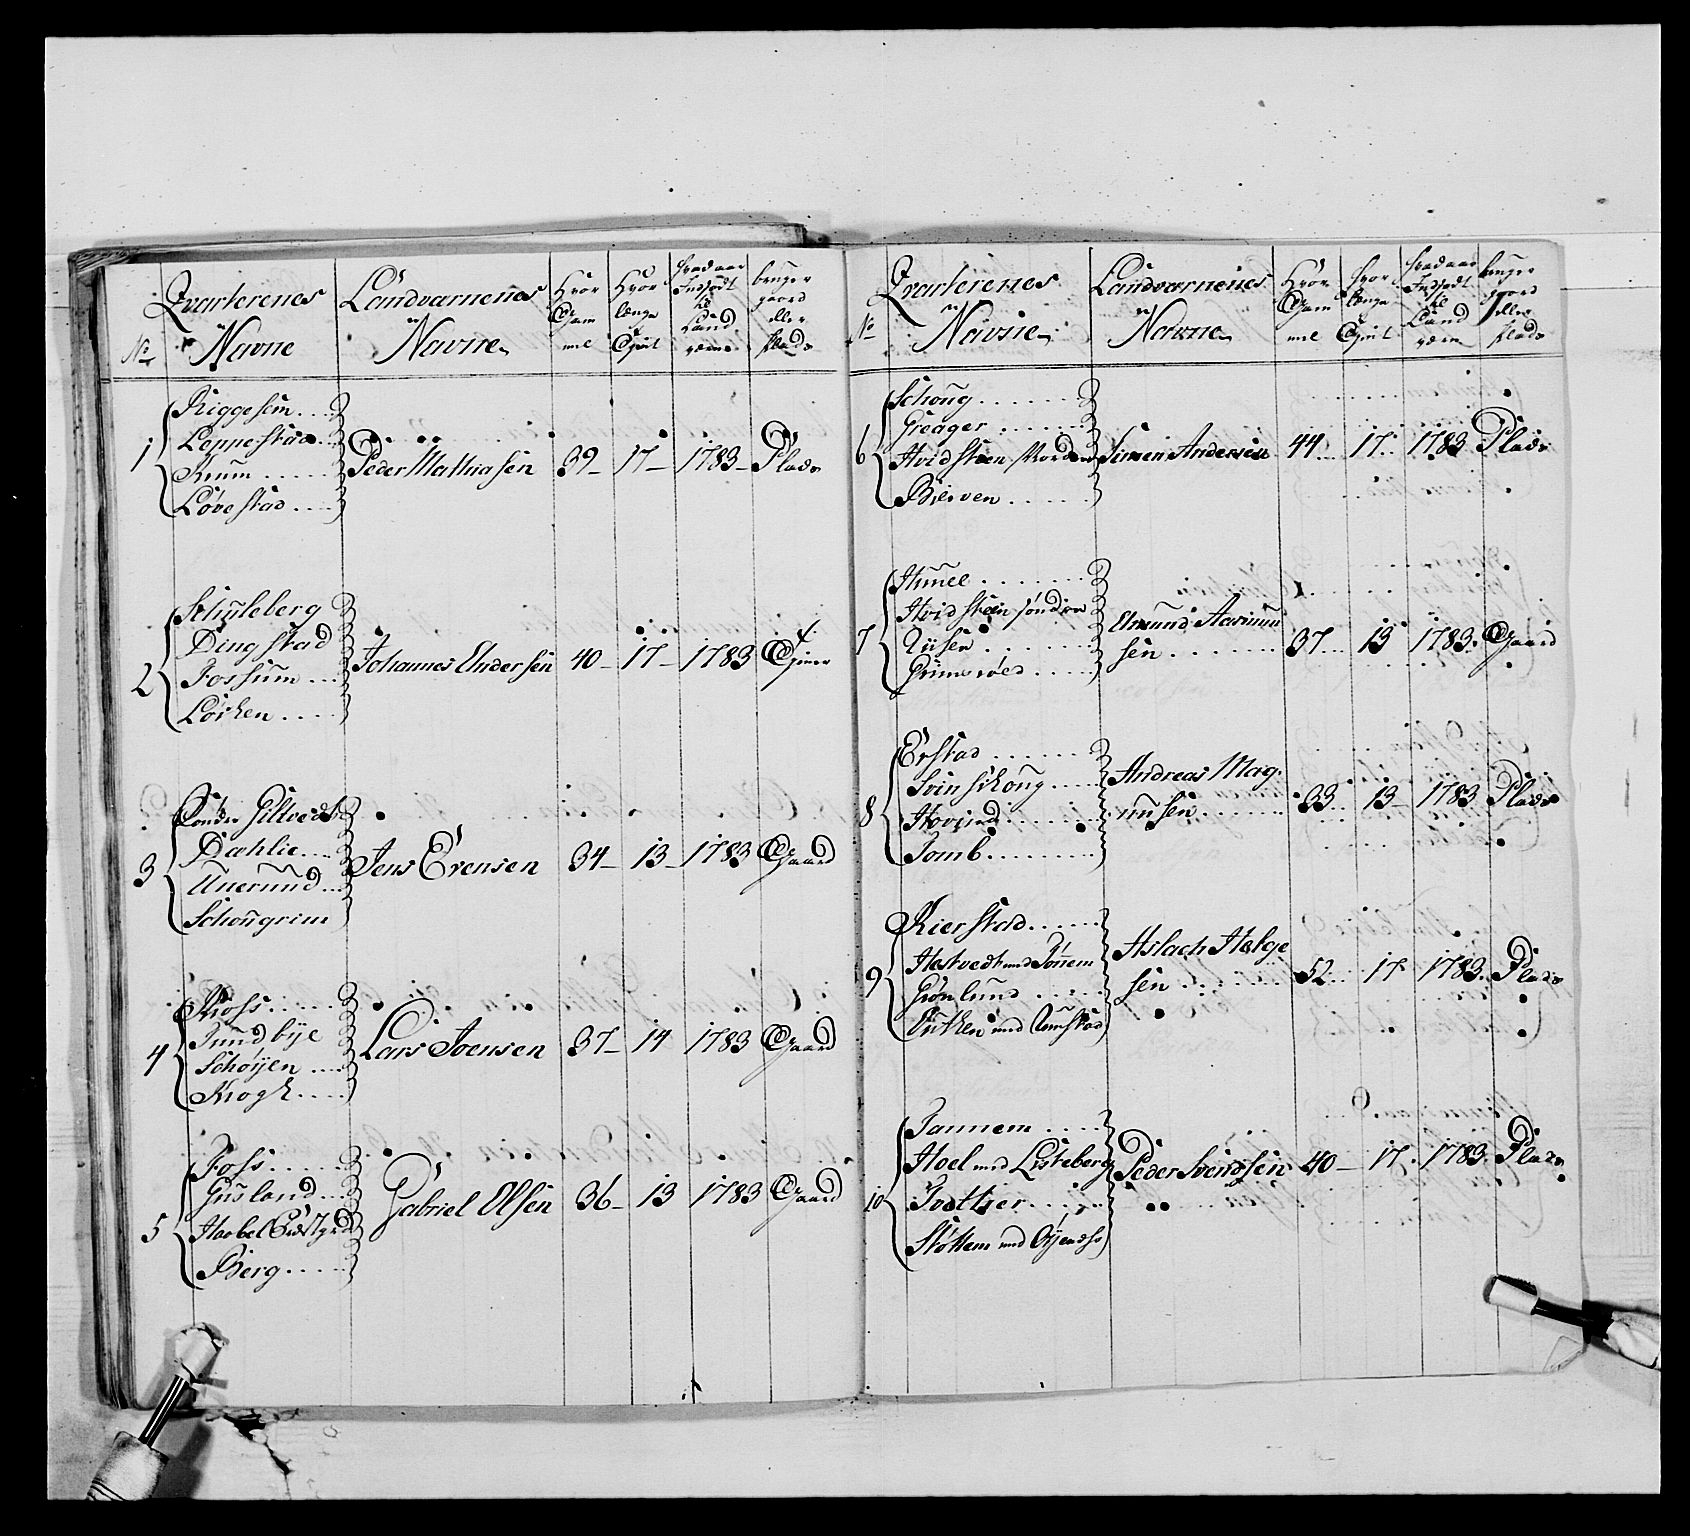 No
Qvarterenes Navne
Landværnenes Navne
Hvor Gammel
Hvor længe tient
hvad aar Indsadt til Landværn
bruger gaard eller Plads
1
Riggesem
Leppestad
Krum
Løvestad
Peder Mathiasen 39 17 1783 Plads
2
Schuleberg
Dingstad
Fossum
Lørken
Johannes Andersen 40 17 1783 tiener
3
Sønder Silvedt
Dæhlie
Unerund
Schougrim
Jens Evensen 34 13 1783 Gaard
4
Moss
Sundbye
Schøyen
Krogh
Lars Svensen 37 14 1783 Gaard
5
Foss
Gusland
Haabel Præstgrd
Berg
Gabriel Olsen 36 13 1783 Gaard
No
Qvarterenes Navne
Landværnenes Navne
Hvor Gammel
hvor længe tient
hvad aar Indsadt til Landværn
bruger gaard eller Plads
6
Schoug
Greager
Hvidsteen Norden
Bierven
Simen Andersen 44 17 1783 Plads
7
Huuel
Hvidsteen sønden
Riisen
Grimsrøed
Amund Aamundsen 37 13 1783 Gaard
8
Erstad
Svinschoug
Hovind
Tomb
Andreas Magnusen 33 13 1783 Plads
9
Kierstad
Hestvedt med
Grønlund
med
Aslach Helgesen 52 17 1783 Plads
10
Tannem
Hoel med Listeberg
Støttem med
Peder Svendsen 40 17 1783 Plads